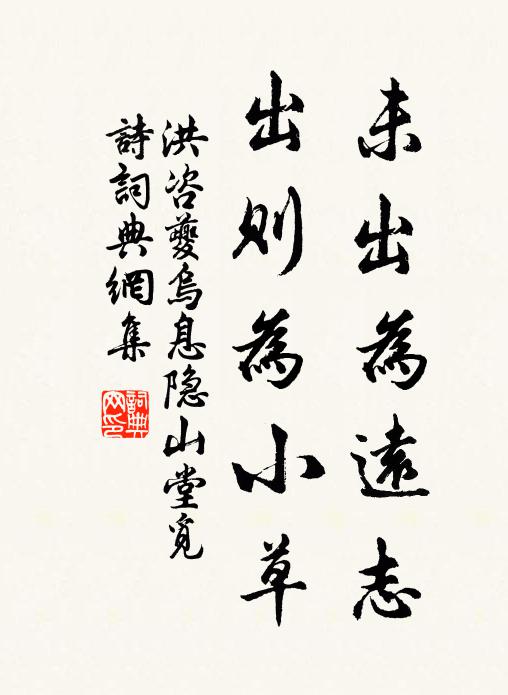 未出為遠志
出則為小草
洪咨夔烏息隐山堂覓
詩詞典網集
詞典網印